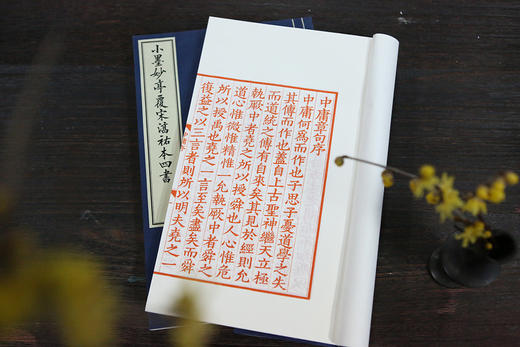 中庸章句序
中庸何爲而作也子思子憂道學之失
其傳而作也蓋自上古聖神繼天立極
而道統之傳有自來矣其見於經則允
執厥中者堯之所以授舜也人心惟危
道心惟微惟精惟一允執厥中者舜之
所以授禹也堯之一言至矣盡矣而舜
復益之以三言者則所以明夫堯之一
小墨妙亭覆宋淳祐本四書